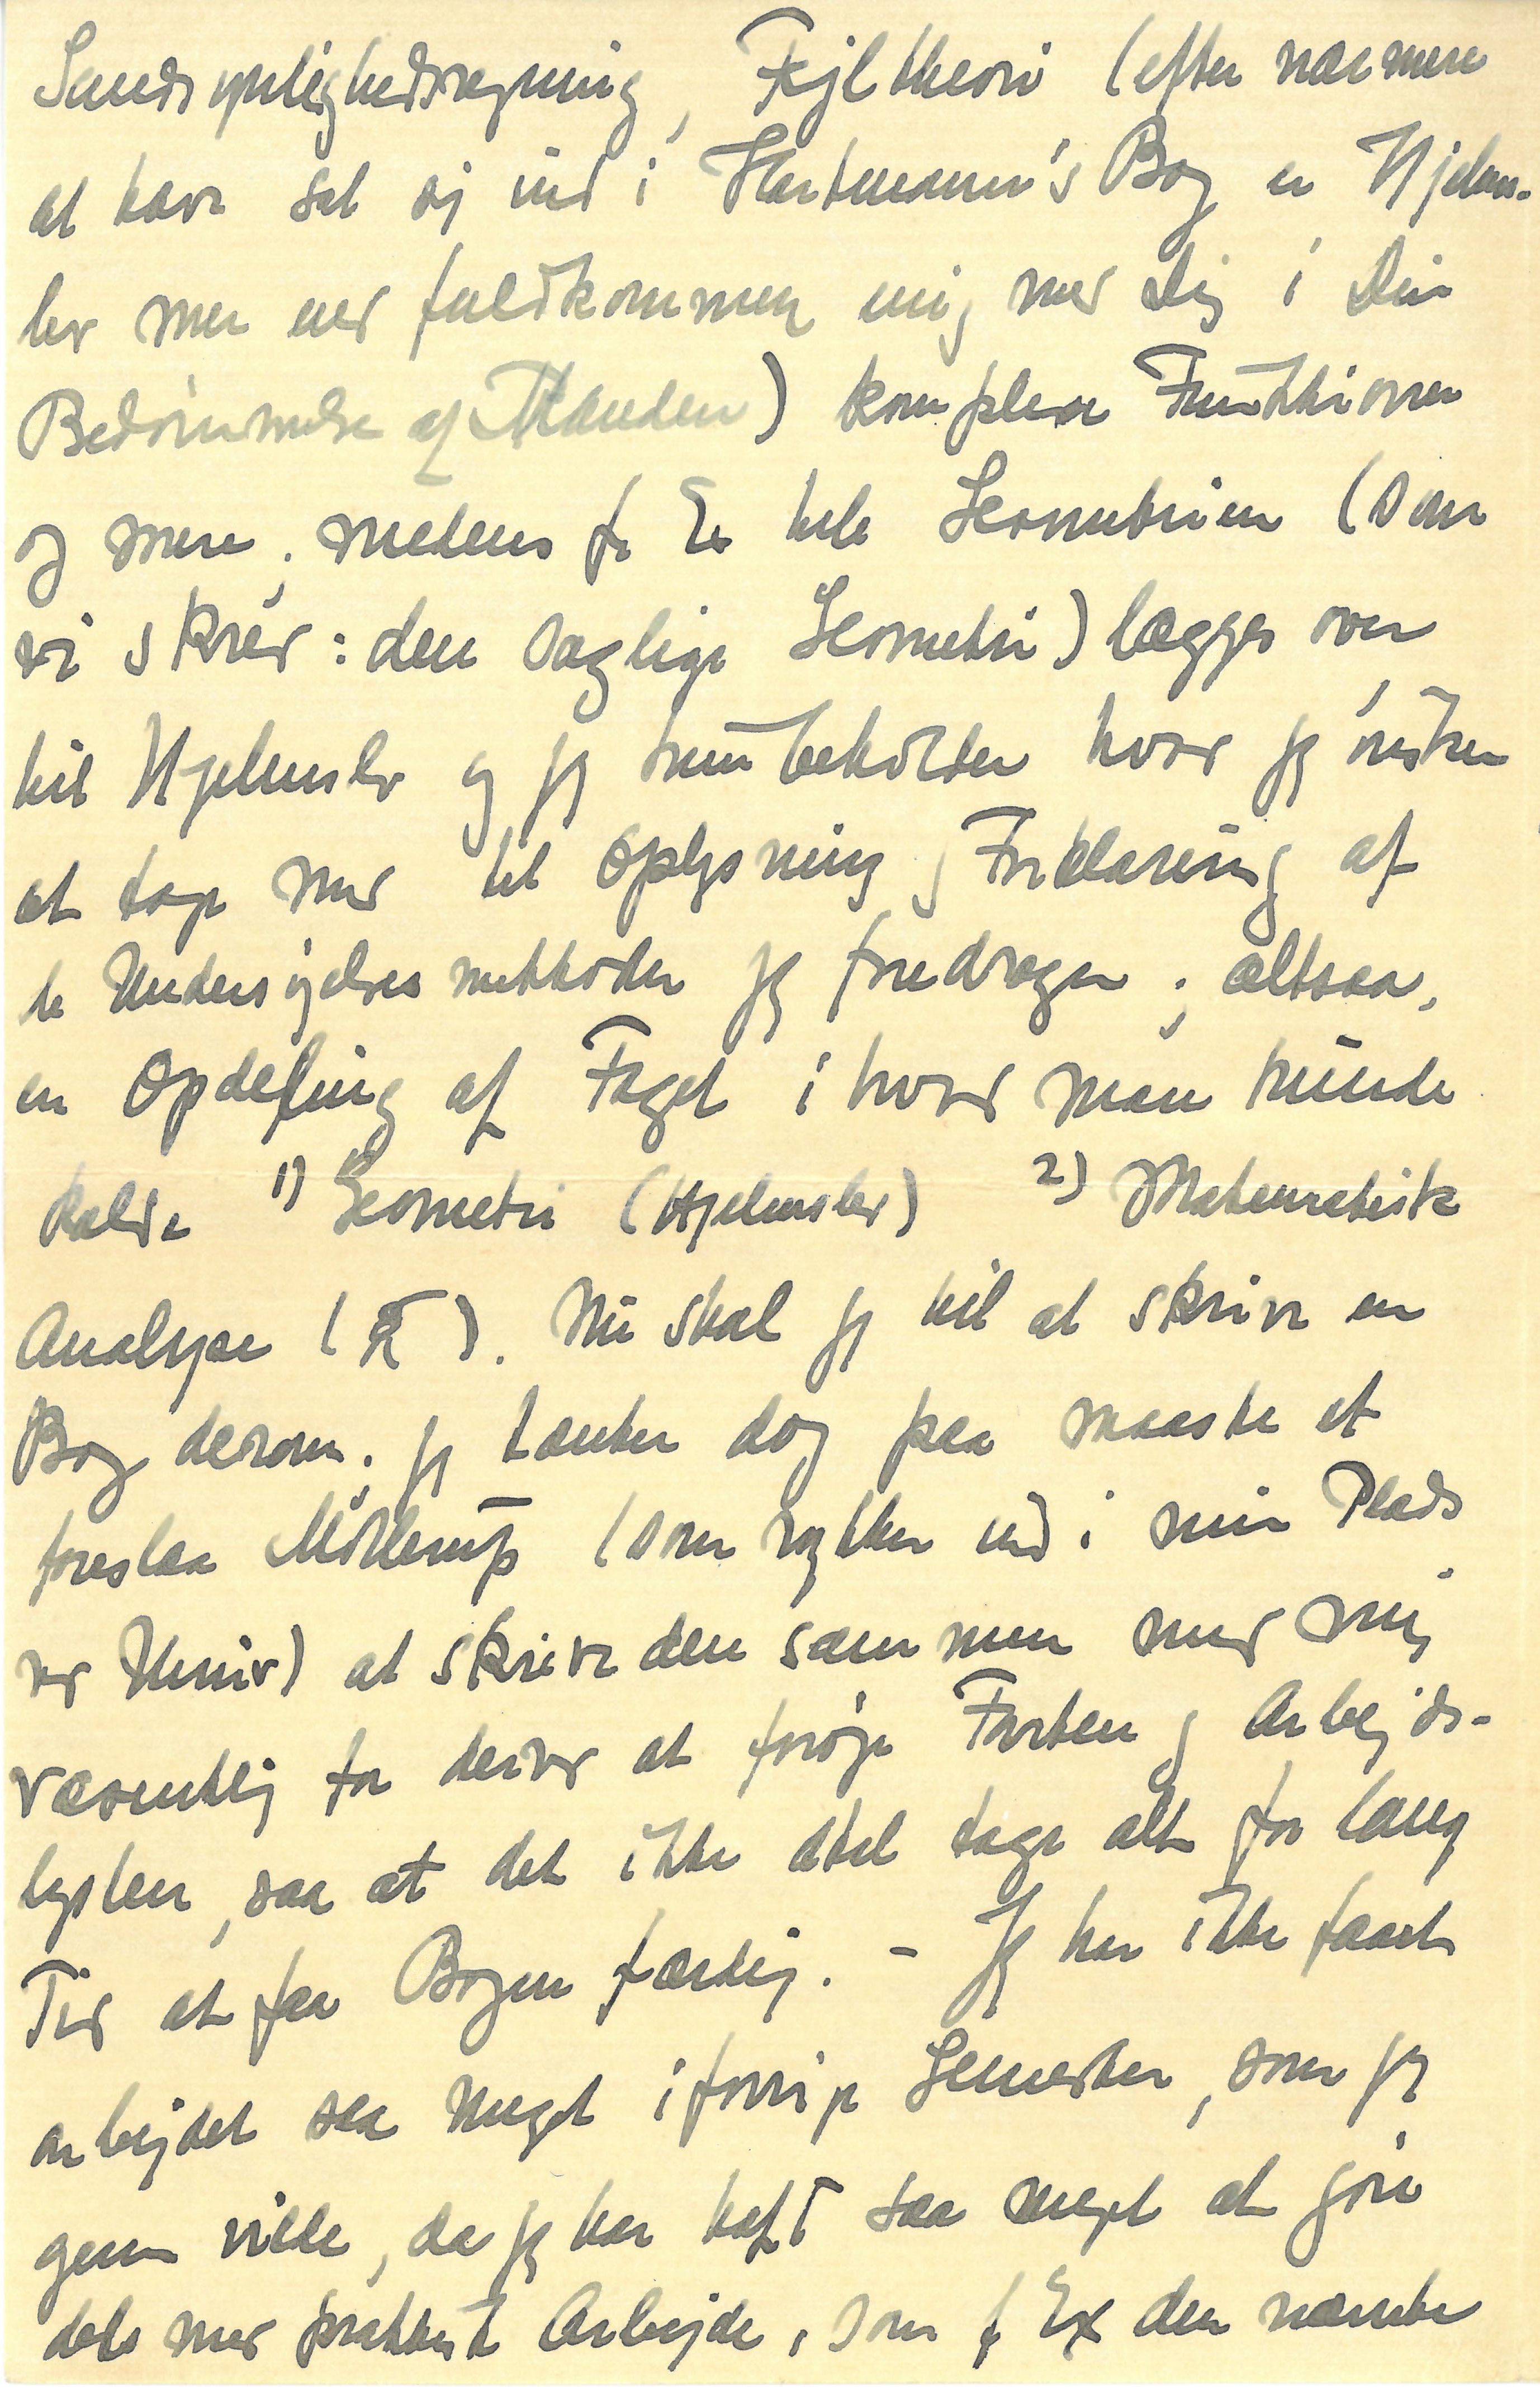 Sandsynlighedsregning, Fejltheori (efter nærmere
at have sat sig ind i Hartmann's Bog er Hjelms-
lev mer end fuldkommen enig med Dig i Din
Bedømmelse af Manden) komplexe Funktioner
og mere; medens f. Ex hele Geometrien (som
vi skrev: den saglige Geometri) lægges over
til Hjelmslev og jeg kun beholder hvad jeg ønsker
at tage med til Oplysning og Forklaring af
de Undersøgelsesmethoder jeg foredrager; altsaa,
en Opdeling af Faget i hvad man kunde
kalde 1) Geometri (Hjelmslev) 2) Mathematisk
Analyse ( ). Nu skal jeg til at skrive en
Bog derom; jeg tænker dog paa maaske at
foreslaa Mollerup (som rykker ind i min Plads
ved Univ) at skrive den sammen med mig
væsentlig for derved at forøge Farten og Arbejds-
lysten, saa at det ikke skal tage alt for lang
Tid at faa Bogen færdig. - Jeg har ikke faaet
arbejdet saa meget i forrige Semester, som jeg
gerne vilde, da jeg har haft saa meget at gøre
dels med praktisk Arbejde, som f Ex den nævnte